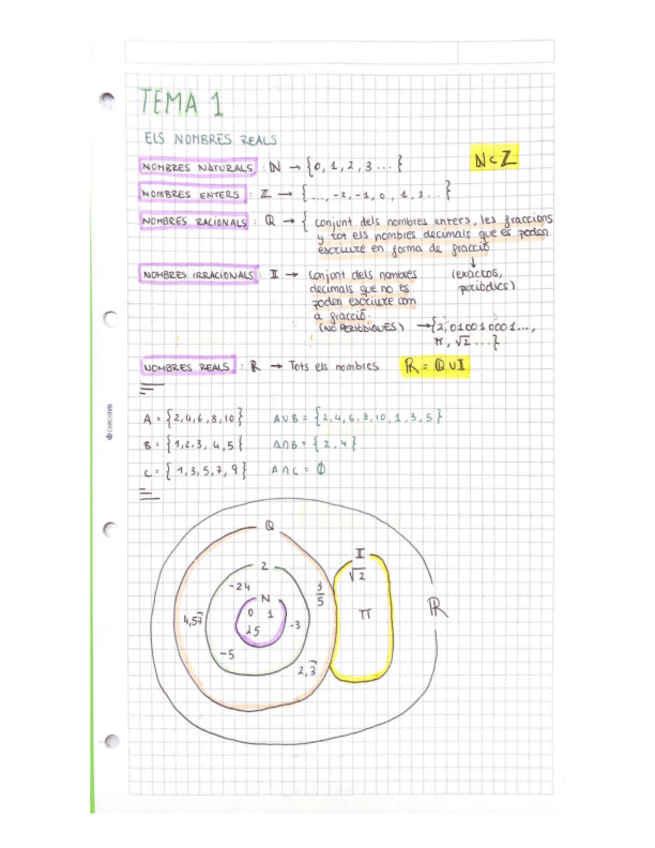 TEMA 1
ELS NOMBRES REALS
NOMBRES NATURALS : ℕ → {0, 1, 2, 3 ... }
N ⊂ ℤ
NOMBRES ENTERS : ℤ → {..., -2, -1, 0, 1, 2 ... }
NOMBRES RACIONALS : ℚ → { conjunt dels nombres enters, les fraccions
y tot els nombres decimals que es poden
escriure en forma de fracció
↓
(exactos,
periòdics)
NOMBRES IRRACIONALS : 𝕀 → conjunt dels nombres
decimals que no es
poden escriure com
a fracció.
(NO PERIÒDIQUES) → {2,010010001...,
π, √2 ...}
NOMBRES REALS : ℝ → Tots els nombres
ℝ = ℚ ∪ 𝕀
A = {2,4,6,8,10}
A∪B = {2,4,6,8,10,1,3,5}
B = {1,2,3,4,5}
A∩B = {2,4}
C = {1,3,5,7,9}
A∩C = Ø
ℚ
I
Z
√2
-24
3/5
N
0 1
ℝ
π
4,57
25
-3
-5
2,3̂